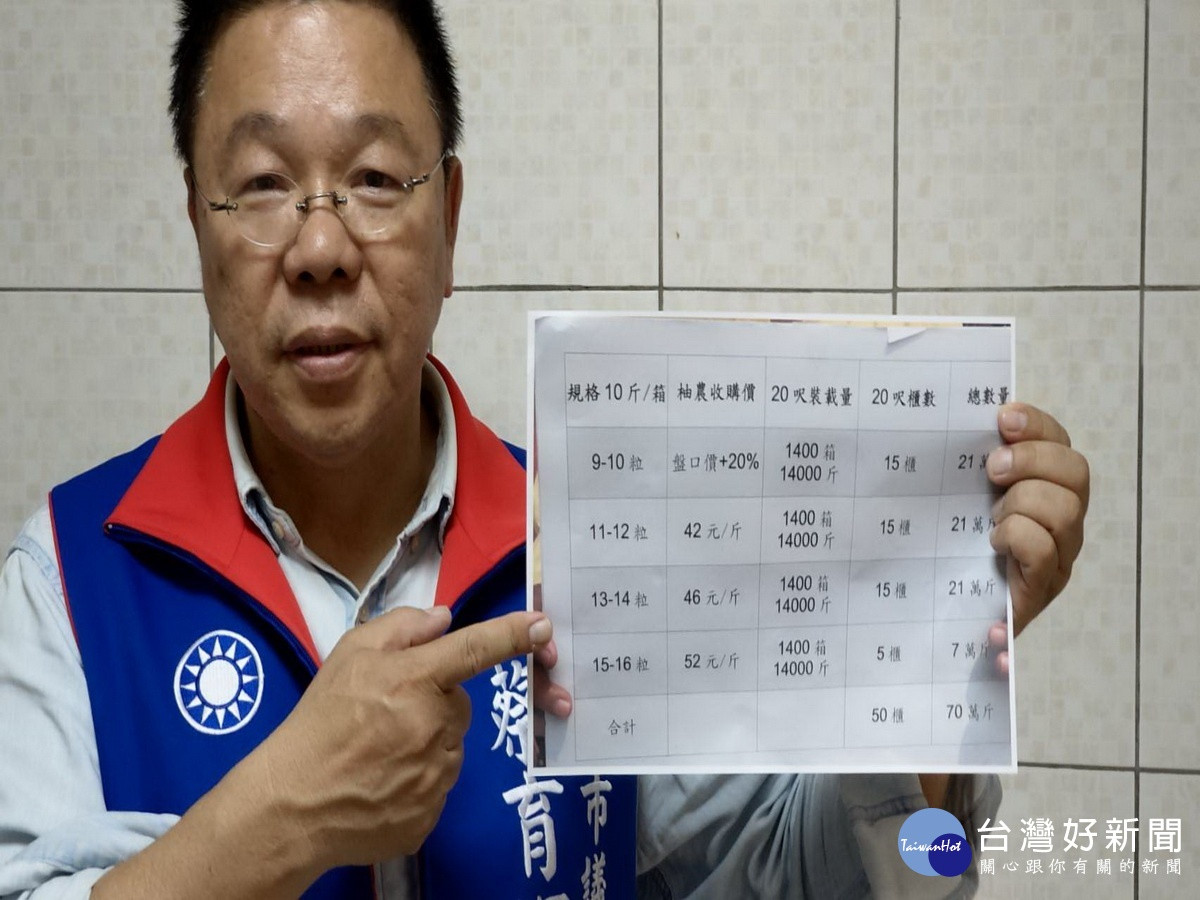 規格 10 斤/箱 柚農收購價 20 呎裝載量 20 呎櫃數 總數量
9-10 粒 盤口價+20% 1400 箱 14000 斤 15 櫃 21 萬
11-12 粒 42 元/斤 1400 箱 14000 斤 15 櫃 21 萬斤
13-14 粒 46 元/斤 1400 箱 14000 斤 15 櫃 21 萬斤
15-16 粒 52 元/斤 1400 箱 14000 斤 5 櫃 7 萬斤
合計 50 櫃 70 萬斤
市議
蔡育
TaiwanHot
台灣好新聞
關心跟你有關的新聞